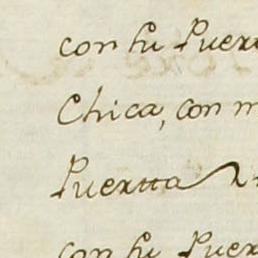 con su Puert
Chica, con m
Puertta
con su Puer